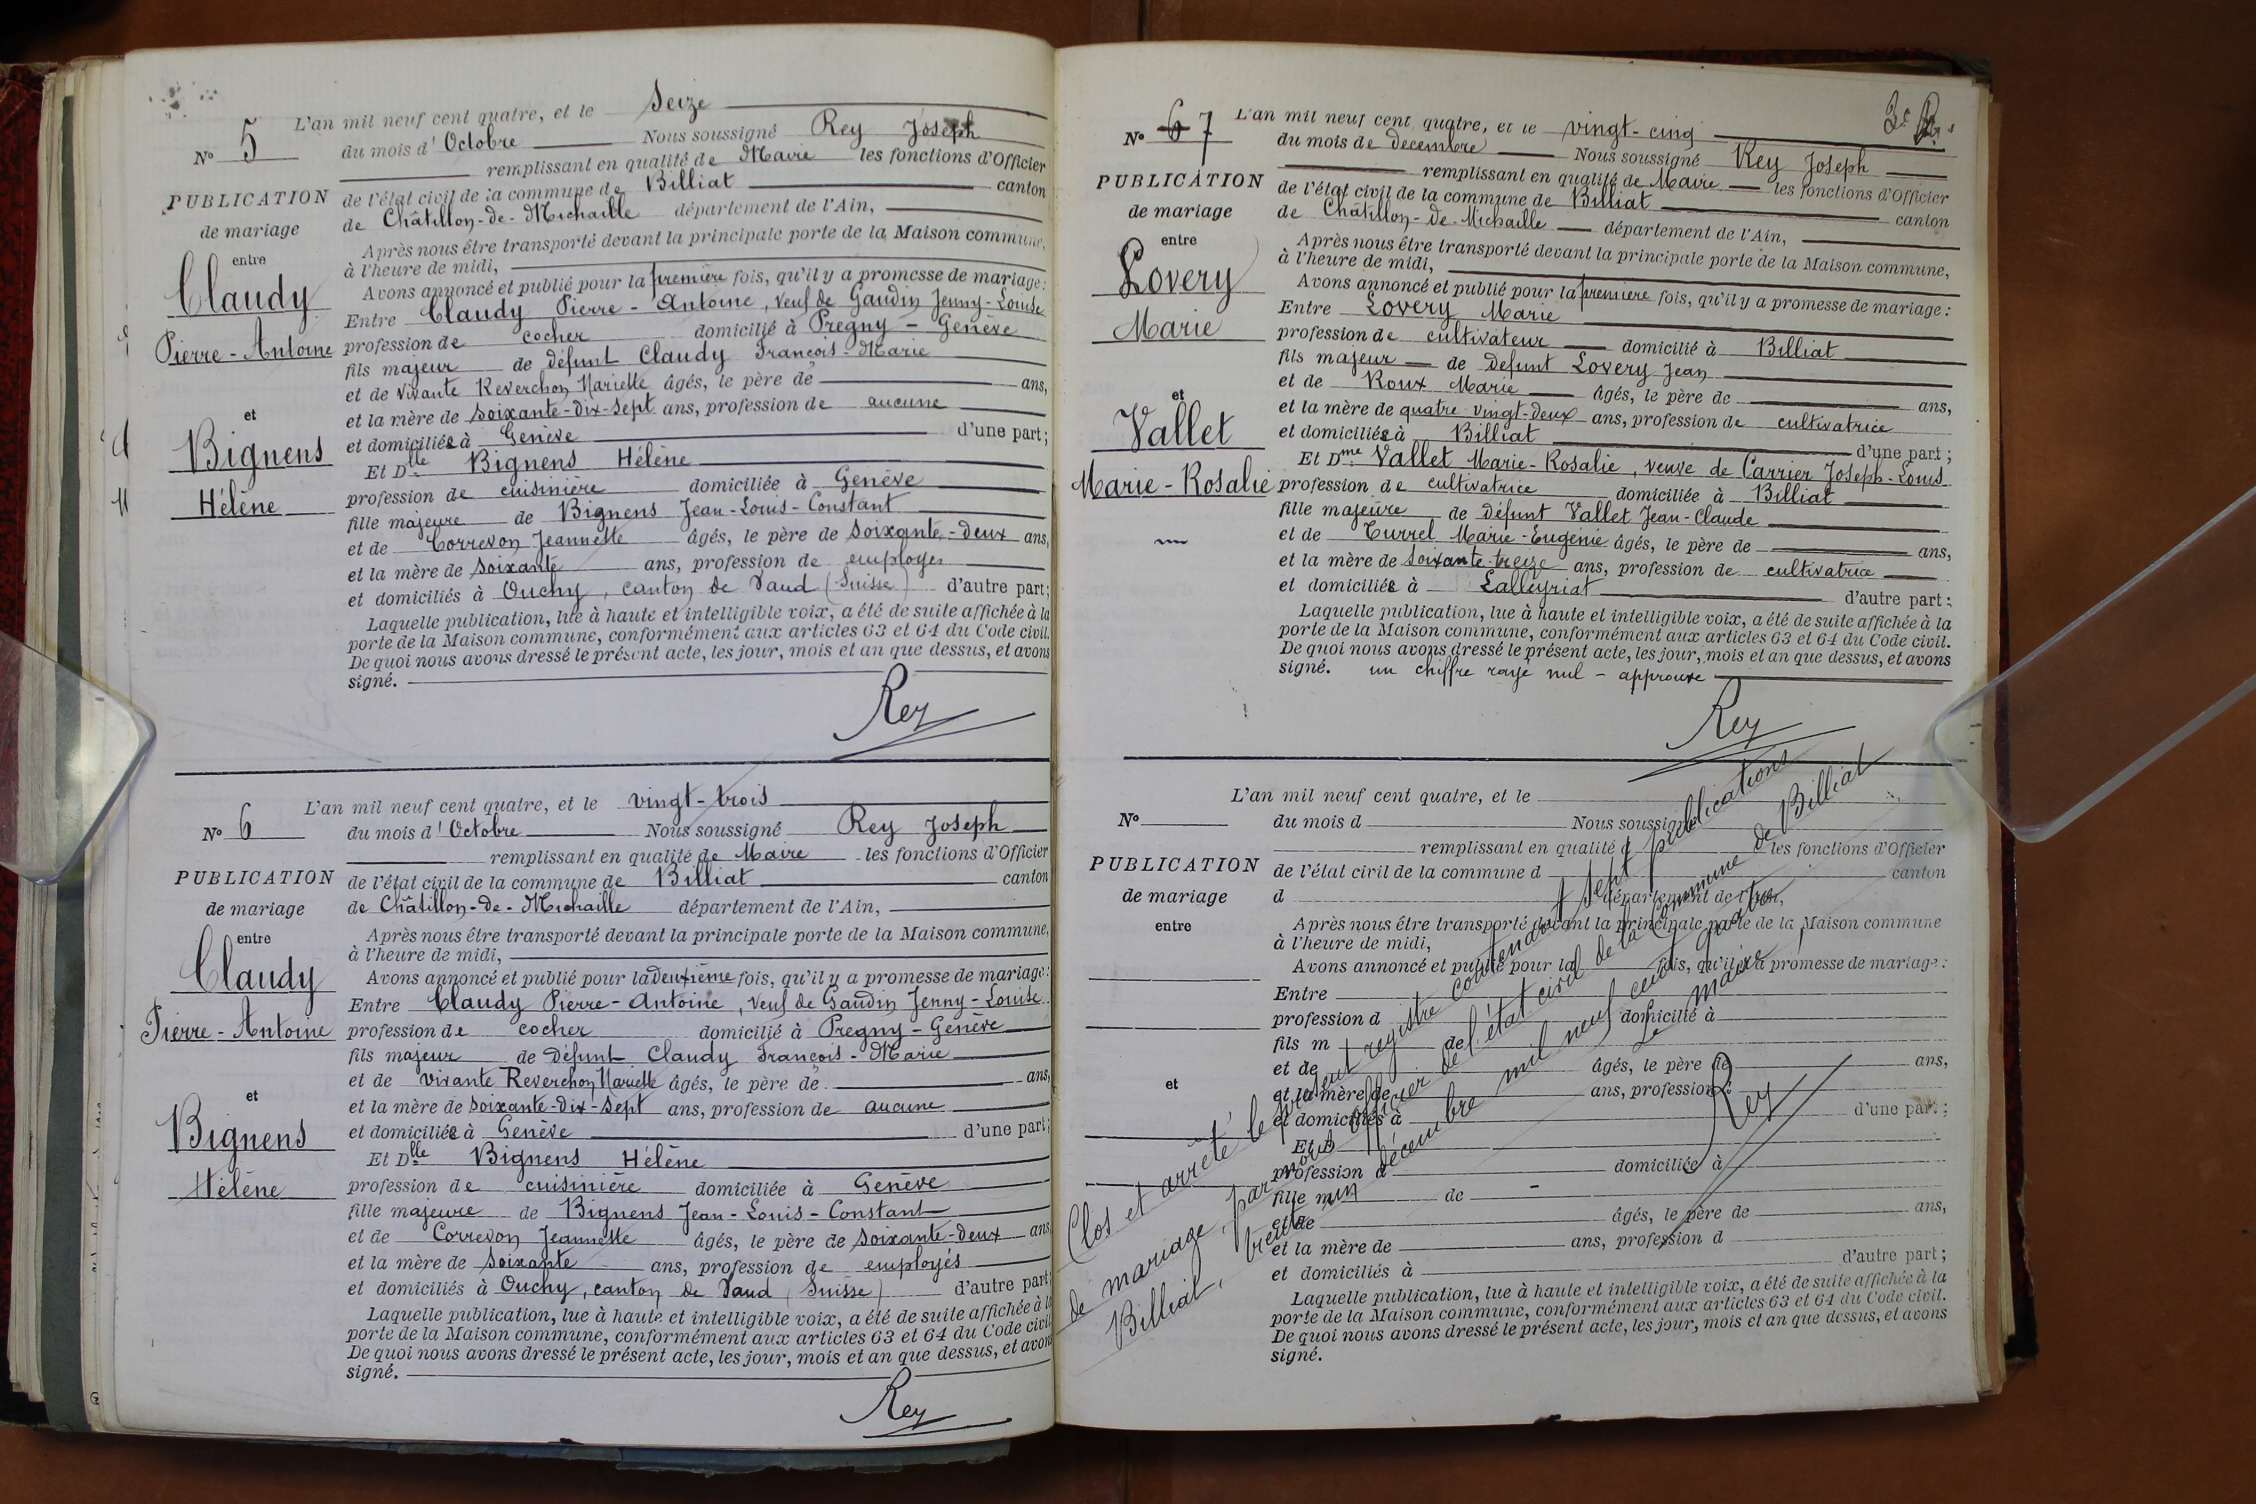 L'an mil neuf cent quatre, et le Seize
N° 5 du mois d'Octobre Nous soussigné Rey Joseph
remplissant en qualité de Maire les fonctions d'Officier
PUBLICATION de l'état civil de la commune de Billiat canton
de mariage de Châtillon-de-Michaille département de l'Ain,
entre Après nous être transporté devant la principale porte de la Maison commune,
à l'heure de midi,
Claudy Avons annoncé et publié pour la première fois, qu'il y a promesse de mariage:
Entre Claudy Pierre-Antoine, veuf de Gaudin Jenny-Louise
Pierre-Antoine profession de cocher domicilié à Pregny-Genève
fils majeur de défunt Claudy François-Marie
et de vivante Reverchon Mariette âgés, le père de ans,
et et la mère de soixante-dix-sept ans, profession de aucune
et domiciliée à Genève d'une part;
Bignens Et Dlle Bignens Hélène
profession de cuisinière domiciliée à Genève
Hélène fille majeure de Bignens Jean-Louis-Constant
et de Correvon Jeannette âgés, le père de soixante-deux ans,
et la mère de soixante ans, profession de employés
et domiciliés à Ouchy, canton de Vaud (Suisse) d'autre part;
Laquelle publication, lue à haute et intelligible voix, a été de suite affichée à la
porte de la Maison commune, conformément aux articles 63 et 64 du Code civil.
De quoi nous avons dressé le présent acte, les jour, mois et an que dessus, et avons
signé.
Rey
L'an mil neuf cent quatre, et le vingt-trois
N° 6 du mois d'Octobre Nous soussigné Rey Joseph
remplissant en qualité de Maire les fonctions d'Officier
PUBLICATION de l'état civil de la commune de Billiat canton
de mariage de Châtillon-de-Michaille département de l'Ain,
entre Après nous être transporté devant la principale porte de la Maison commune,
à l'heure de midi,
Claudy Avons annoncé et publié pour la Deuxième fois, qu'il y a promesse de mariage:
Entre Claudy Pierre-Antoine, veuf de Gaudin Jenny-Louise
Pierre-Antoine profession de cocher domicilié à Pregny-Genève
fils majeur de défunt Claudy François-Marie
et de vivante Reverchon Mariette âgés, le père de ans,
et et la mère de soixante-dix-sept ans, profession de aucune
et domiciliée à Genève d'une part;
Bignens Et Dlle Bignens Hélène
Hélène profession de cuisinière domiciliée à Genève
fille majeure de Bignens Jean-Louis-Constant
et de Correvon Jeannette âgés, le père de soixante-deux ans
et la mère de soixante ans, profession de employés
et domiciliés à Ouchy, canton de Vaud (Suisse) d'autre part;
Laquelle publication, lue à haute et intelligible voix, a été de suite affichée à la
porte de la Maison commune, conformément aux articles 63 et 64 du Code civil
De quoi nous avons dressé le présent acte, les jour, mois et an que dessus, et avons
signé.
Rey
L'an mil neuf cent quatre, et le vingt-cinq
N° 6 7 du mois de décembre Nous soussigné Rey Joseph
remplissant en qualité de Maire les fonctions d'Officier
PUBLICATION de l'état civil de la commune de Billiat canton
de mariage de Châtillon-de-Michaille département de l'Ain,
entre Après nous être transporté devant la principale porte de la Maison commune,
à l'heure de midi,
Lovery Avons annoncé et publié pour la première fois, qu'il y a promesse de mariage:
Entre Lovery Marie
Marie profession de cultivateur domicilié à Billiat
fils majeur de défunt Lovery Jean
et de Roux Marie âgés, le père de ans,
et et la mère de quatre vingt-deux ans, profession de cultivatrice
Vallet et domiciliée à Billiat d'une part;
Et Dme Vallet Marie-Rosalie, veuve de Carrier Joseph-Louis
Marie-Rosalie profession de cultivatrice domiciliée à Billiat
fille majeure de défunt Vallet Jean-Claude
et de Turrel Marie-Eugénie âgés, le père de ans,
et la mère de soixante-treize ans, profession de cultivatrice
et domiciliée à Lalleyriat d'autre part;
Laquelle publication, lue à haute et intelligible voix, a été de suite affichée à la
porte de la Maison commune, conformément aux articles 63 et 64 du Code civil.
De quoi nous avons dressé le présent acte, les jour, mois et an que dessus, et avons
signé. un chiffre rayé nul - approuvé
Rey
L'an mil neuf cent quatre, et le
N° du mois d Nous soussigné
remplissant en qualité d les fonctions d'Officier
PUBLICATION de l'état civil de la commune d canton
de mariage d département de l'Ain,
entre Après nous être transporté devant la principale porte de la Maison commune
à l'heure de midi,
Avons annoncé et publié pour la fois, qu'il y a promesse de mariage:
Entre
profession d domicilié à
fils m de
et de âgés, le père de ans,
et et la mère de ans, profession d
et domiciliés à d'une part;
Et D
profession d domiciliée à
fille m de
et de âgés, le père de ans,
et la mère de ans, profession d
et domiciliés à d'autre part;
Laquelle publication, lue à haute et intelligible voix, a été de suite affichée à la
porte de la Maison commune, conformément aux articles 63 et 64 du Code civil.
De quoi nous avons dressé le présent acte, les jour, mois et an que dessus, et avons
signé.
Clos et arrêté le présent registre contenant sept publications
de mariage, par nous officier de l'état civil de la commune de Billiat
Billiat, trente un décembre mil neuf cent quatre
Le maire,
Rey